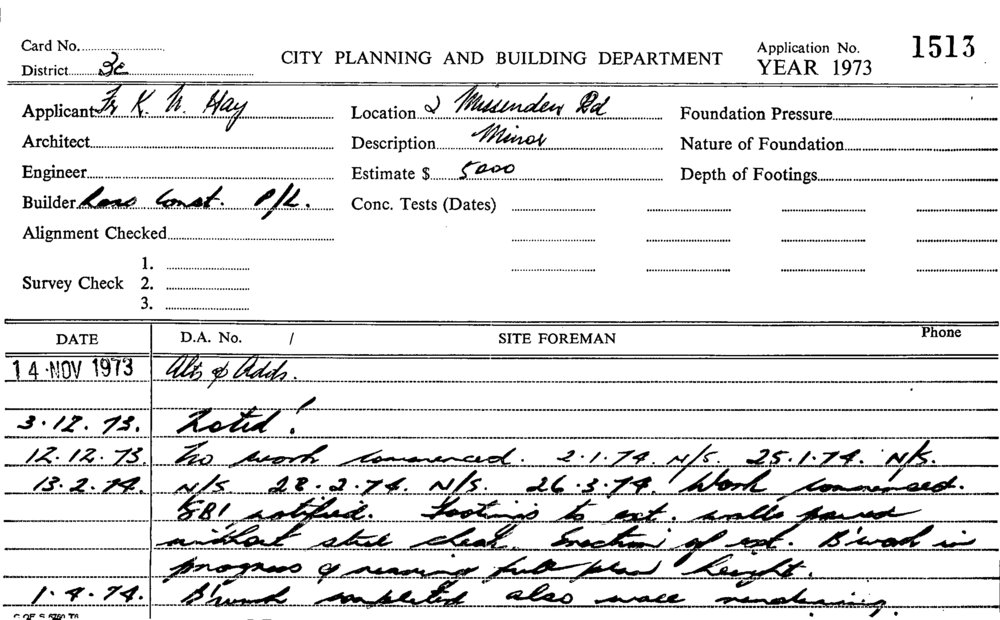 Card No.
District 3c
CITY PLANNING AND BUILDING DEPARTMENT
Application No. 1513
YEAR 1973
Applicant Fr K. N. Hay
Location 2 Missenden Rd
Foundation Pressure
Architect
Description Minor
Nature of Foundation
Engineer
Estimate $ 5000
Depth of Footings
Builder Const. P/L.
Conc. Tests (Dates)
Alignment Checked
Survey Check 1.
2.
3.
DATE D.A. No. / SITE FOREMAN Phone
14 NOV 1973 Alts & Adds.
3.12.73. Noted!
12.12.73. No work commenced. 2.1.74. N/S. 25.1.74. N/S.
13.2.74. N/S 28.2.74. N/S. 26.3.74. Work commenced.
notified. Footings to ext. walls poured
without steel check. Erection of ext. B'work in
progress & nearing full plan height.
1.4.74. B'work completed also wall rendering.